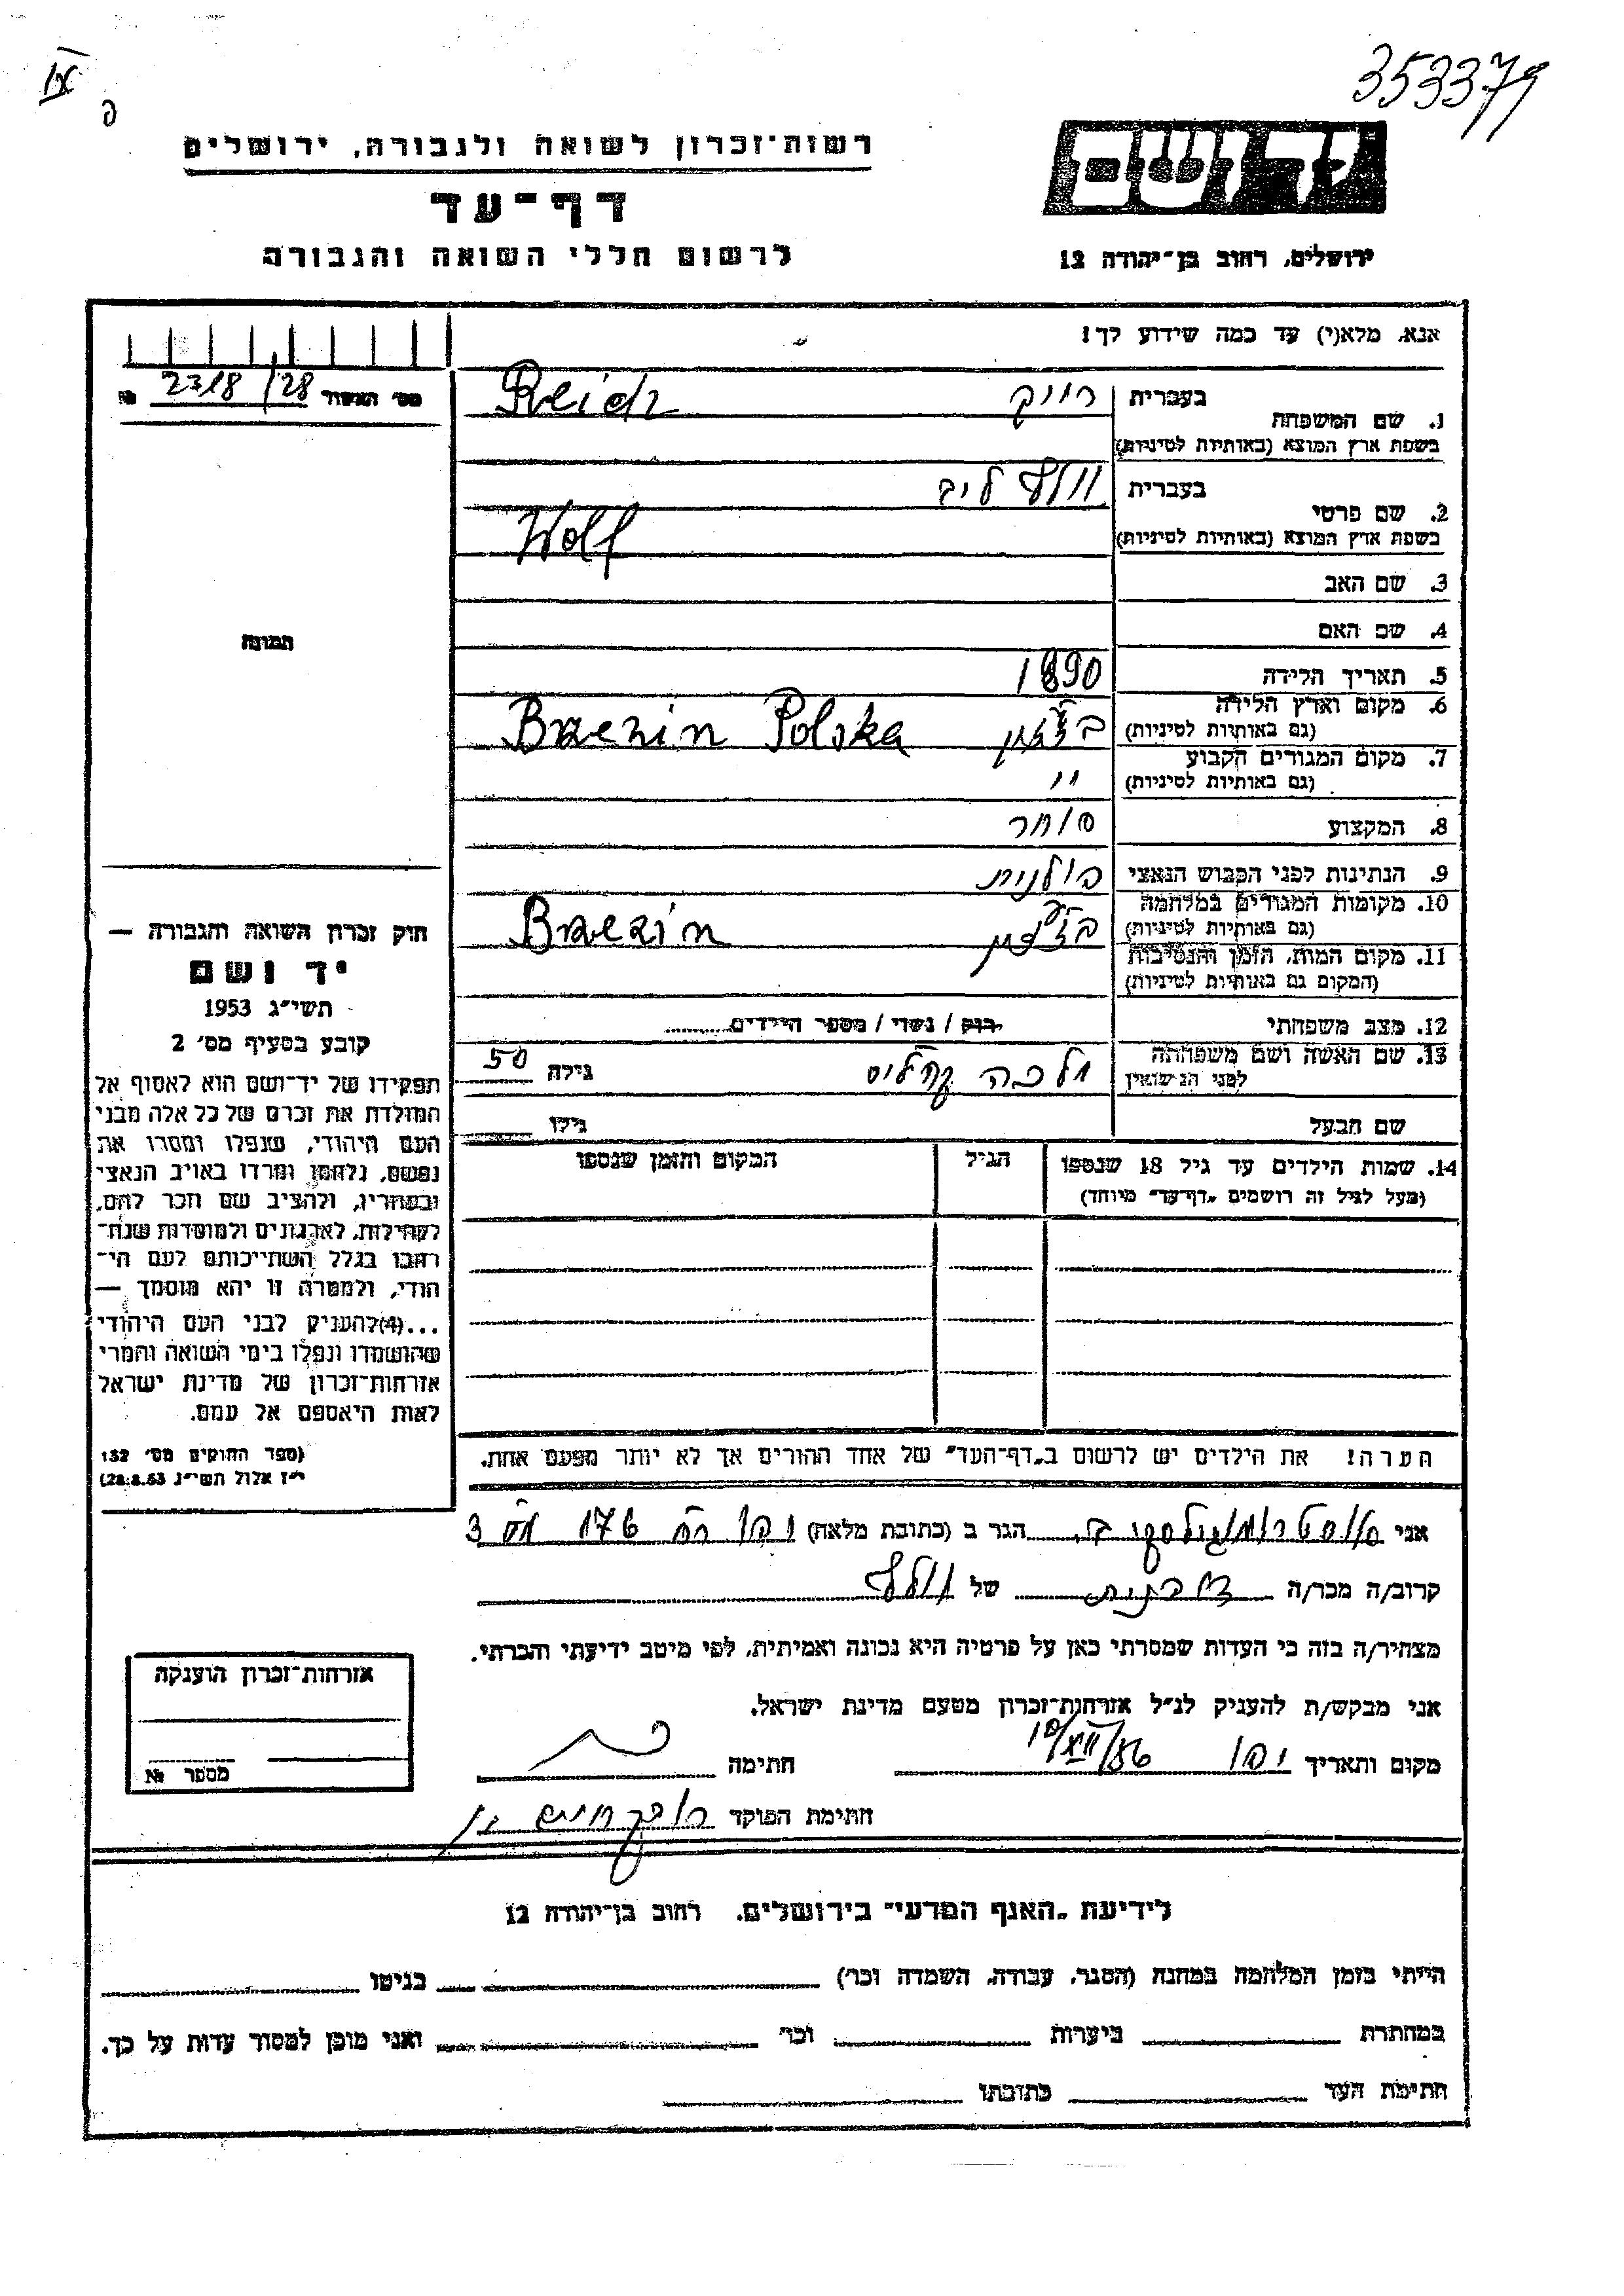 353379
IX
פ
רשות־זכרון לשואה ולגבורה, ירושלים
דף־עד
לרשום חללי השואה והגבורה
יד ושם
ירושלים, רחוב בן־יהודה 12
אנא, מלא(י) עד כמה שידוע לך!
מס׳ האשור 2318/28 №
1. שם המשפחה
בעברית רייך
Reich
בשפת ארץ המוצא (באותיות לטיניות)
2. שם פרטי
בעברית וולף ליב
בשפת ארץ המוצא (באותיות לטיניות) Wolf
3. שם האב
4. שם האם
5. תאריך הלידה 1890
6. מקום וארץ הלידה
(גם באותיות לטיניות) Brzezin Polska
7. מקום המגורים הקבוע
(גם באותיות לטיניות) ״
8. המקצוע סוחר
9. הנתינות לפני הכבוש הנאצי פולנית
10. מקומות המגורים במלחמה
(גם באותיות לטיניות) Brzezin
11. מקום המות, הזמן והנסיבות
(המקום גם באותיות לטיניות)
12. מצב משפחתי רווק / נשוי / מספר הילדים
13. שם האשה ושם משפחתה
לפני הנישואין מלכה גילה 50
שם הבעל גילו
14. שמות הילדים עד גיל 18 שנספו
(מעל לגיל זה רושמים „דף־עד״ מיוחד)
הגיל
המקום והזמן שנספו
הערה! את הילדים יש לרשום ב„דף־העד״ של אחד ההורים אך לא יותר מפעם אחת.
תמונה
חוק זכרון השואה והגבורה —
יד ושם
תשי״ג 1953
קובע בסעיף מס׳ 2
תפקידו של יד־ושם הוא לאסוף אל
המולדת את זכרם של כל אלה מבני
העם היהודי, שנפלו ומסרו את
נפשם, נלחמו ומרדו באויב הנאצי
ובעוזריו, ולהציב שם וזכר להם,
לקהילות, לארגונים ולמוסדות שנח־
רבו בגלל השתייכותם לעם הי־
הודי, ולמטרה זו יהא מוסמך —
...(4)להעניק לבני העם היהודי
שהושמדו ונפלו בימי השואה והמרי
אזרחות־זכרון של מדינת ישראל
לאות היאספם אל עמם.
(ספר החוקים מס׳ 132
י״ז אלול תשי״ג 28.8.53)
אני הגר ב (כתובת מלאה) יפו 176 3
קרוב/ה מכר/ה של וולף
מצהיר/ה בזה כי העדות שמסרתי כאן על פרטיה היא נכונה ואמיתית, לפי מיטב ידיעתי והכרתי.
אני מבקש/ת להעניק לנ״ל אזרחות־זכרון מטעם מדינת ישראל.
מקום ותאריך יפו 10/XII/56 חתימה
חתימת הפוקד
אזרחות־זכרון הוענקה
מספר №
לידיעת „האגף המדעי״ בירושלים, רחוב בן־יהודה 12
הייתי בזמן המלחמה במחנה (הסגר, עבודה, השמדה וכר׳) בגיטו
במחתרת ביערות וכר׳ ואני מוכן למסור עדות על כך.
חתימת העד כתובתו